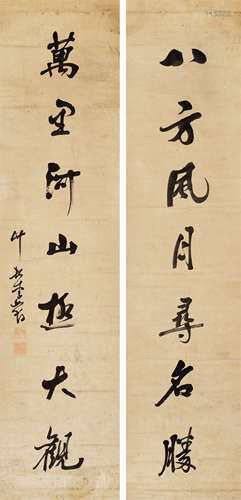 八方風月尋名勝
萬里河山極大觀